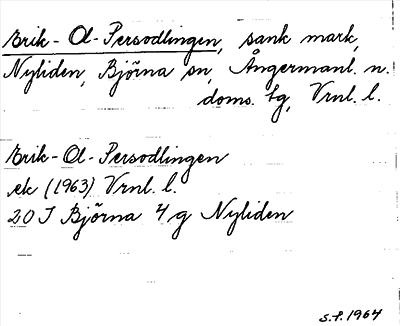 Erik-Ol-Persodlingen, sank mark,
Nyliden, Björna sn, Ångermanl. n.
doms. tg, Vrnl. l.
Erik-Ol-Persodlingen
ek (1963) Vrnl. l.
20 J Björna 4 g Nyliden
S.F. 1964